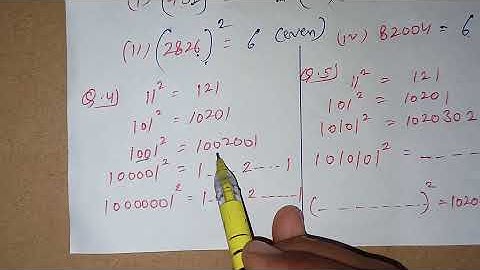 (ii) (2826)² = 6 (even)
(iv) 82004 = 6
Q.4) 11² = 121
101² = 10201
1001² = 1002001
100001² = 1 _ _ 2 _ _ _ 1
10000001² = 1 _ _ 2 _ _ _ 1
Q.5) 11² = 121
101² = 10201
10101² = 1020302
1010101² = _ _ _
( _ _ _ _ _ _ _ )² = 1020